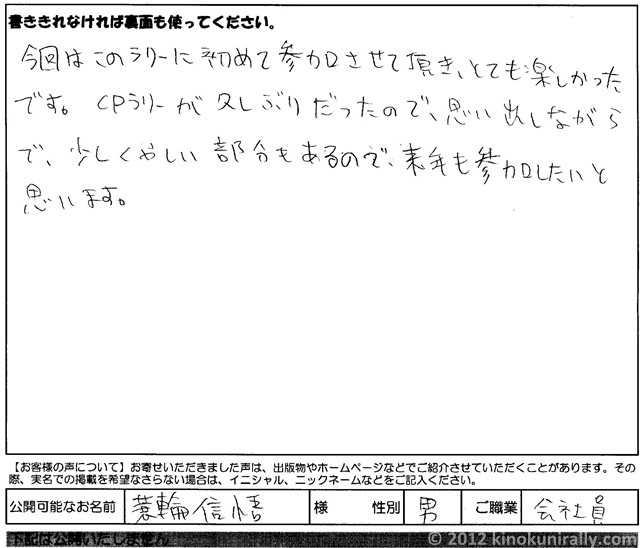 書ききれなければ裏面も使ってください。
今回はこのラリーに初めて参加させて頂き、とても楽しかった
です。CPラリーが久しぶりだったので、思い出しながら
で、少しくやしい部分もあるので、来年も参加したいと
思います。
【お客様の声について】お寄せいただきました声は、出版物やホームページなどでご紹介させていただくことがあります。その
際、実名での掲載を希望なさらない場合は、イニシャル、ニックネームなどをご記入ください。
公開可能なお名前 蓑輪信悟 様 性別 男 ご職業 会社員
下記は公開いたしません
© 2012 kinokunirally.com